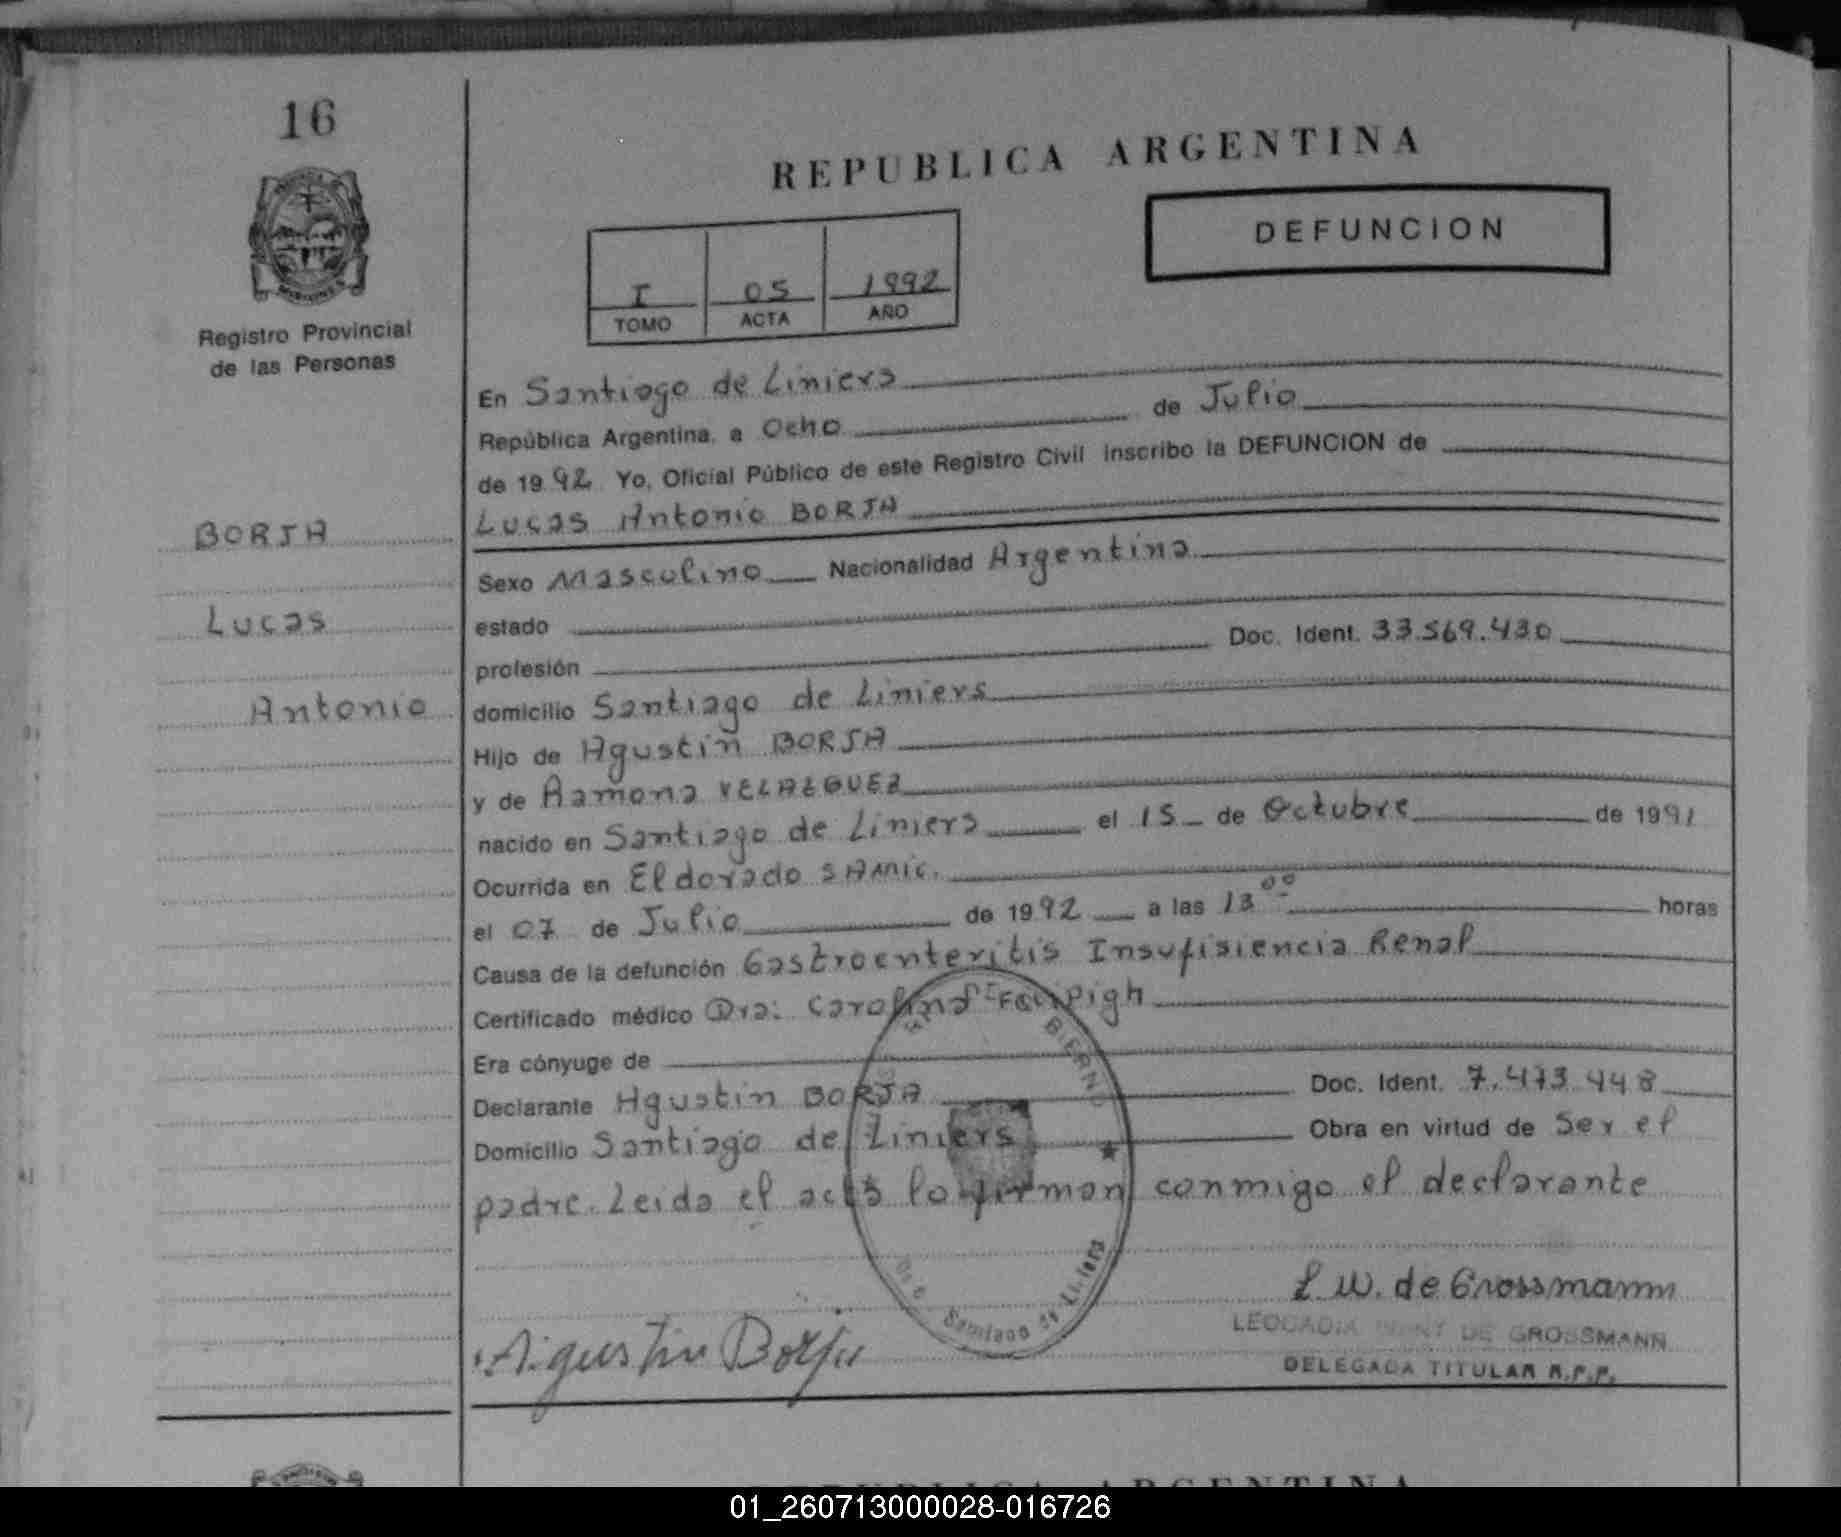 16
REPUBLICA ARGENTINA
DEFUNCION
I 05 1992
TOMO ACTA AÑO
MISIONES
Registro Provincial
de las Personas
BORJA
Lucas
Antonio
En Santiago de Liniers
República Argentina, a Ocho de Julio
de 1992 Yo, Oficial Público de este Registro Civil inscribo la DEFUNCION de
Lucas Antonio BORJA
Sexo Masculino Nacionalidad Argentina
estado
profesión Doc. Ident. 33.569.430
domicilio Santiago de Liniers
Hijo de Agustin BORJA
y de Ramona VELAZQUEZ
nacido en Santiago de Liniers el 15 de Octubre de 1991
Ocurrida en Eldorado SAMIC.
el 07 de Julio de 1992 a las 13 00 horas
Causa de la defunción Gastroenteritis Insufisiencia Renal
Certificado médico Dra: Carolina
Era cónyuge de
Declarante Agustin BORJA Doc. Ident. 7.473.448
Domicilio Santiago de Liniers Obra en virtud de Ser el
padre. Leida el acta la firman conmigo el declarante
Santiago de Liniers
L. W. de Grossmann
LEOCADIA DE GROSSMANN
DELEGADA TITULAR R.P.P.
Agustin Borja
REPUBLICA ARGENTINA
01_260713000028-016726